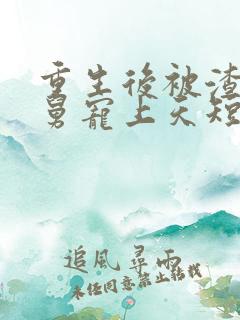 重生後被渣
舅寵上天短
追風尋雨
未经同意禁止转载